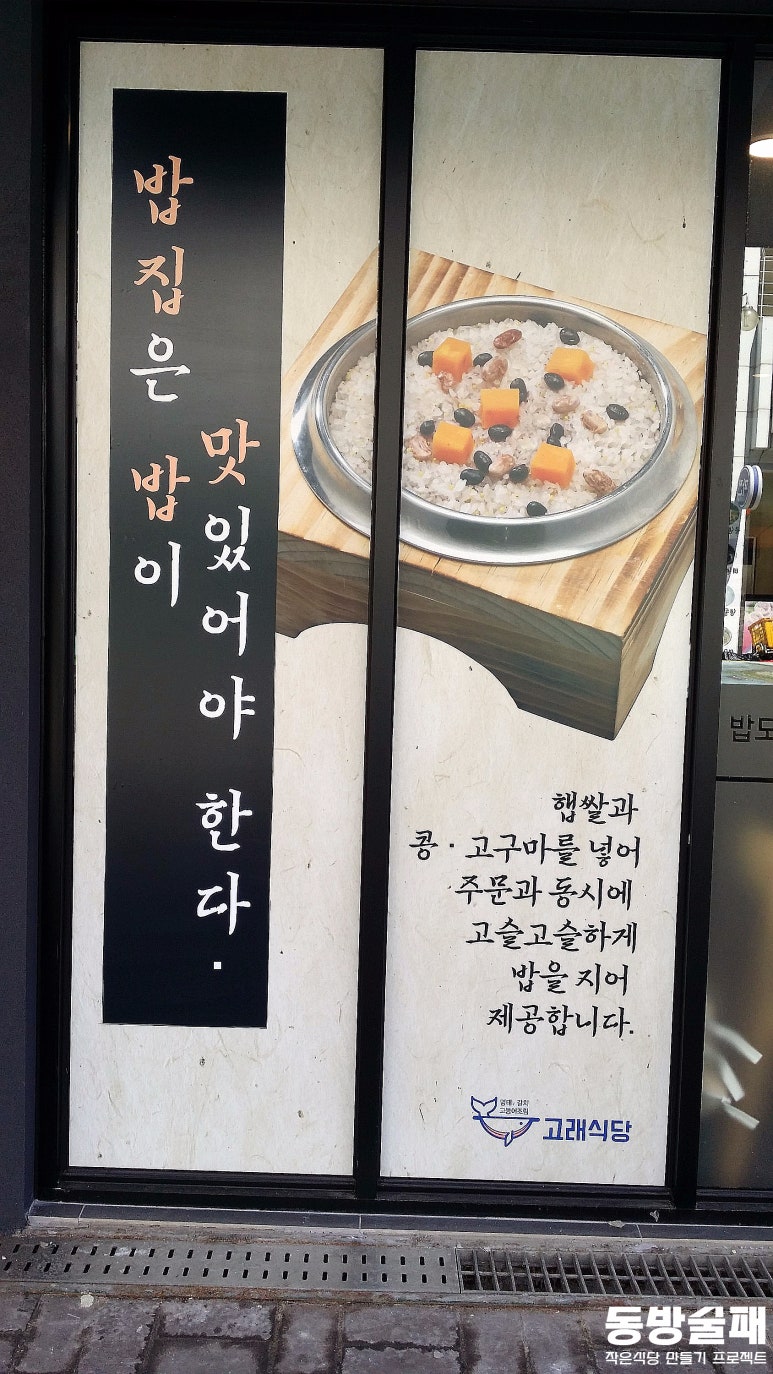 밥집은 밥이
맛있어야 한다.
햅쌀과
콩·고구마를 넣어
주문과 동시에
고슬고슬하게
밥을 지어
제공합니다.
명태, 갈치
고등어조림
고래식당
밥도
동방술패
작은식당 만들기 프로젝트